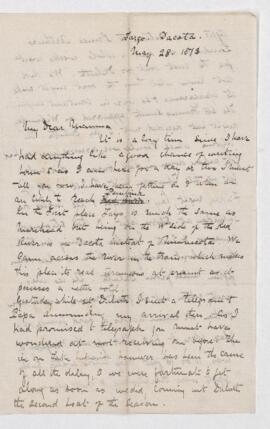 Fargo. Dacota.
May 28. 1873
My Dear Mamma
It is a long time since I have
had anything like a good chance of writing
home & as I am here for a day or two I must
tell you how I have been getting on & when I
am likely to reach
In the first place Fargo is much the same as
Moorhead but being on the W side of the Red
River is in Dacota instead of Minnesota. We
came across the River in the train which makes
this place its real terminus at present as it
possesses a better hotel
Yesterday while at Duluth I sent a telegram to
Papa announcing my arrival there. As I
had promised to telegraph you must have
wondered at not receiving one before. The
ice on Lake Superior however has been the cause
of all the delay, & we were fortunate to get
along as soon as we did, coming into Duluth
the second boat of the season.